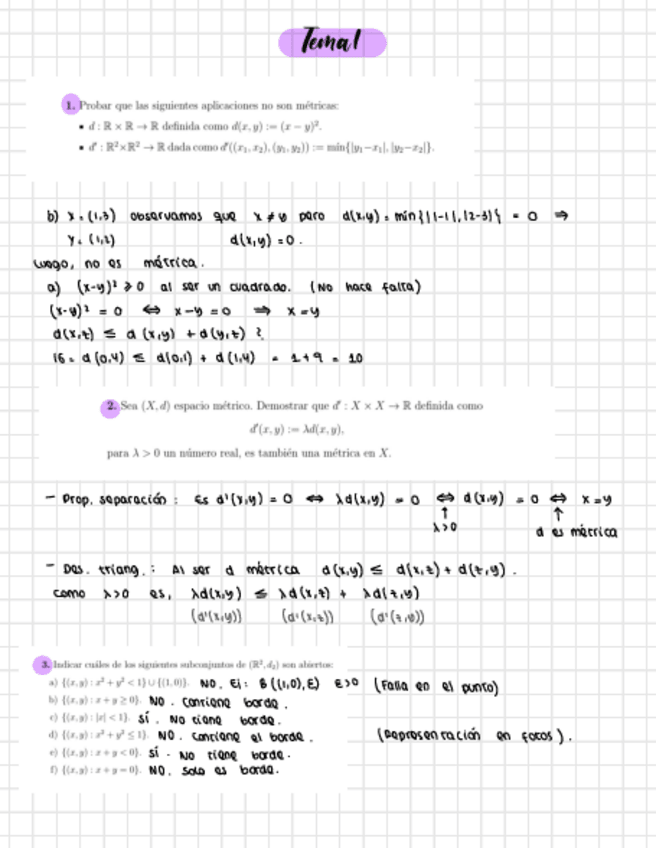 Tema 1
1. Probar que las siguientes aplicaciones no son métricas:
• d : ℝ × ℝ → ℝ definida como d(x, y) := (x − y)².
• d' : ℝ²×ℝ² → ℝ dada como d'((x₁, x₂), (y₁, y₂)) := mín{|y₁−x₁|, |y₂−x₂|}.
b) x = (1,3) observamos que x ≠ y pero d(x,y) = min{|1-1|, |2-3|} = 0 ⇒
y = (1,2) d(x,y) = 0.
Luego, no es métrica.
a) (x-y)² ≥ 0 al ser un cuadrado. (No hace falta)
(x-y)² = 0 ⇔ x-y = 0 ⇒ x = y
d(x,z) ≤ d(x,y) + d(y,z) ?
16 = d(0,4) ≤ d(0,1) + d(1,4) = 1+9 = 10
2. Sea (X, d) espacio métrico. Demostrar que d' : X × X → ℝ definida como
d'(x, y) := λd(x, y),
para λ > 0 un número real, es también una métrica en X.
- Prop. separación : Es d'(x,y) = 0 ⇔ λd(x,y) = 0 ⇔ d(x,y) = 0 ⇔ x = y
↑ ↑
λ>0 d es métrica
- Des. triang. : Al ser d métrica d(x,y) ≤ d(x,z) + d(z,y).
como λ>0 es, λd(x,y) ≤ λd(x,z) + λd(z,y)
(d'(x,y)) (d'(x,z)) (d'(z,y))
3. Indicar cuáles de los siguientes subconjuntos de (ℝ², d₂) son abiertos:
a) {(x, y) : x² + y² < 1} ∪ {(1, 0)}. NO. Ej: B((1,0),ε) ε>0 (Falla en el punto)
b) {(x, y) : x + y ≥ 0}. NO. Contiene borde.
c) {(x, y) : |x| < 1}. Sí. No tiene borde.
d) {(x, y) : x² + y² ≤ 1}. NO. contiene el borde. (Representación en fotos).
e) {(x, y) : x + y < 0}. Sí. No tiene borde.
f) {(x, y) : x + y = 0}. NO. Solo es borde.